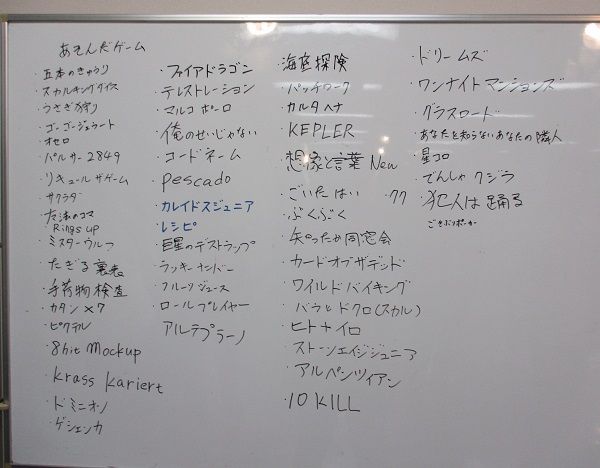 あそんだゲーム
・五本のきゅうり
・スカルキングダイス
・うさぎ狩り
・ゴーゴージェラート
・オセロ
・パルサー2849
・リキュールザゲーム
・サクラダ
・魔法のコマ
Rings up
・ミスターウルフ
・たぎる裏表
・手荷物検査
・カタン×7
・ピクテル
・8bit Mockup
・krass kariert
・ドミニオン
・ゲシェンカ
・ファイアドラゴン
・テレストレーション
・マルコポーロ
・俺のせいじゃない
・コードネーム
・pescado
・カレイドスジュニア
・レシピ
・巨星のデストラップ
・ラッキーナンバー
・フルーツジュース
・ロールプレイヤー
・アルテプラーノ
・海底探険
・パッチワーク
・カルタヘナ
・KEPLER
・想像と言葉 New
・ごいた はい 77
・ぶくぶく
・矢ったか同窓会
・カードオブザデッド
・ワイルドバイキング
・バラとドクロ(スカル)
・ヒトナイロ
・ストーンエイジジュニア
・アルペンツィアン
・10KILL
・ドリームズ
・ワンナイトマンションズ
・グラスロード
・あなたを知らないあなたの隣人
・星コロ
・でんしゃクジラ
・犯人は踊る